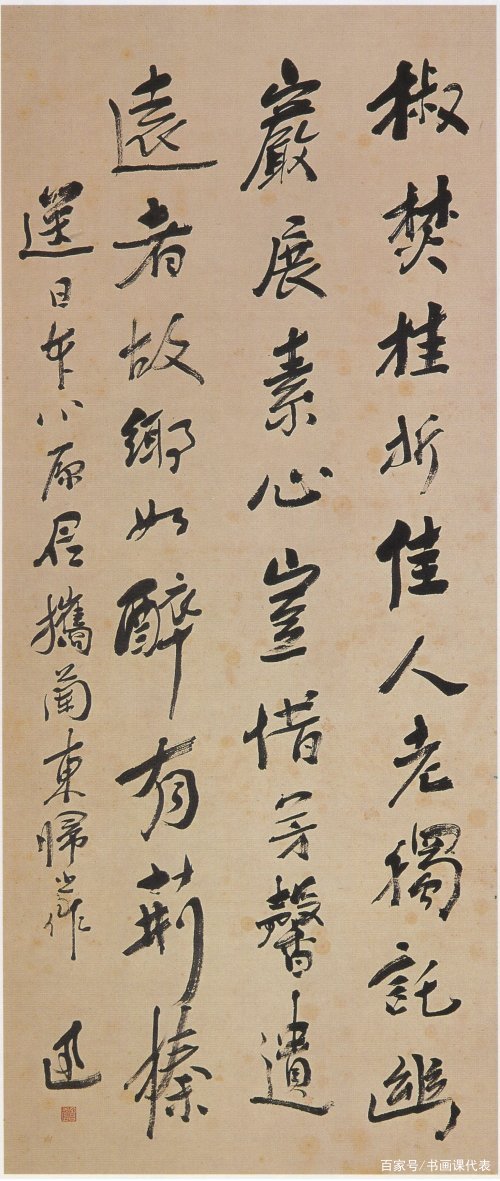 椒焚桂折佳人老獨託幽
巖展素心豈惜芳馨遺
遠者故鄉如醉有荊榛
送日本小原君攜蘭東歸之作 迅
百家号/书画课代表